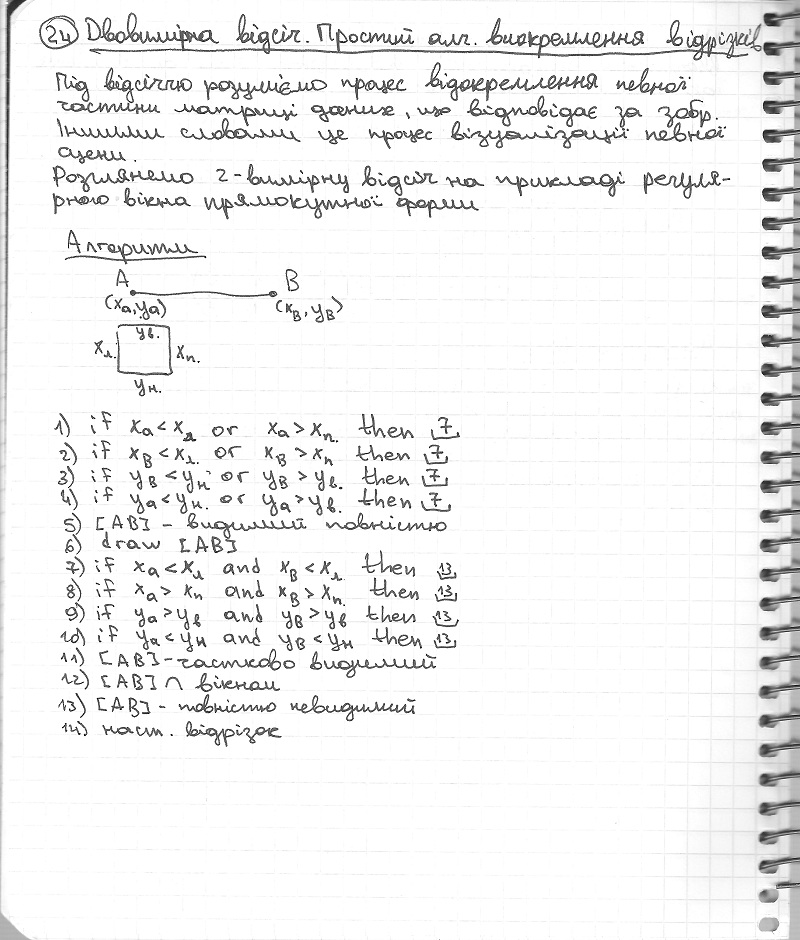 24 Двовимірна відсіч. Простий алг. виокремлення відрізків
Під відсіччю розуміємо процес відокремлення певної
частини матриці даних, що відповідає за зобр.
Іншими словами це процес візуалізації певної
сцени.
Розглянемо 2-вимірну відсіч на прикладі регуля-
рного вікна прямокутної форми
Алгоритм
A B
(xa, ya) (xB, yB)
yв.
xл. xп.
yн.
1) if xa < xл or xa > xп. then 7
2) if xB < xл. or xB > xп then 7
3) if yB < yн or yB > yв. then 7
4) if ya < yн. or ya > yв. then 7
5) [AB] - видимий повністю
6) draw [AB]
7) if xa < xл and xB < xл. then 13
8) if xa > xп and xB > xп. then 13
9) if ya > yв and yB > yв then 13
10) if ya < yн and yB < yн then 13
11) [AB] - частково видимий
12) [AB] ∩ вікном
13) [AB] - повністю невидимий
14) наст. відрізок